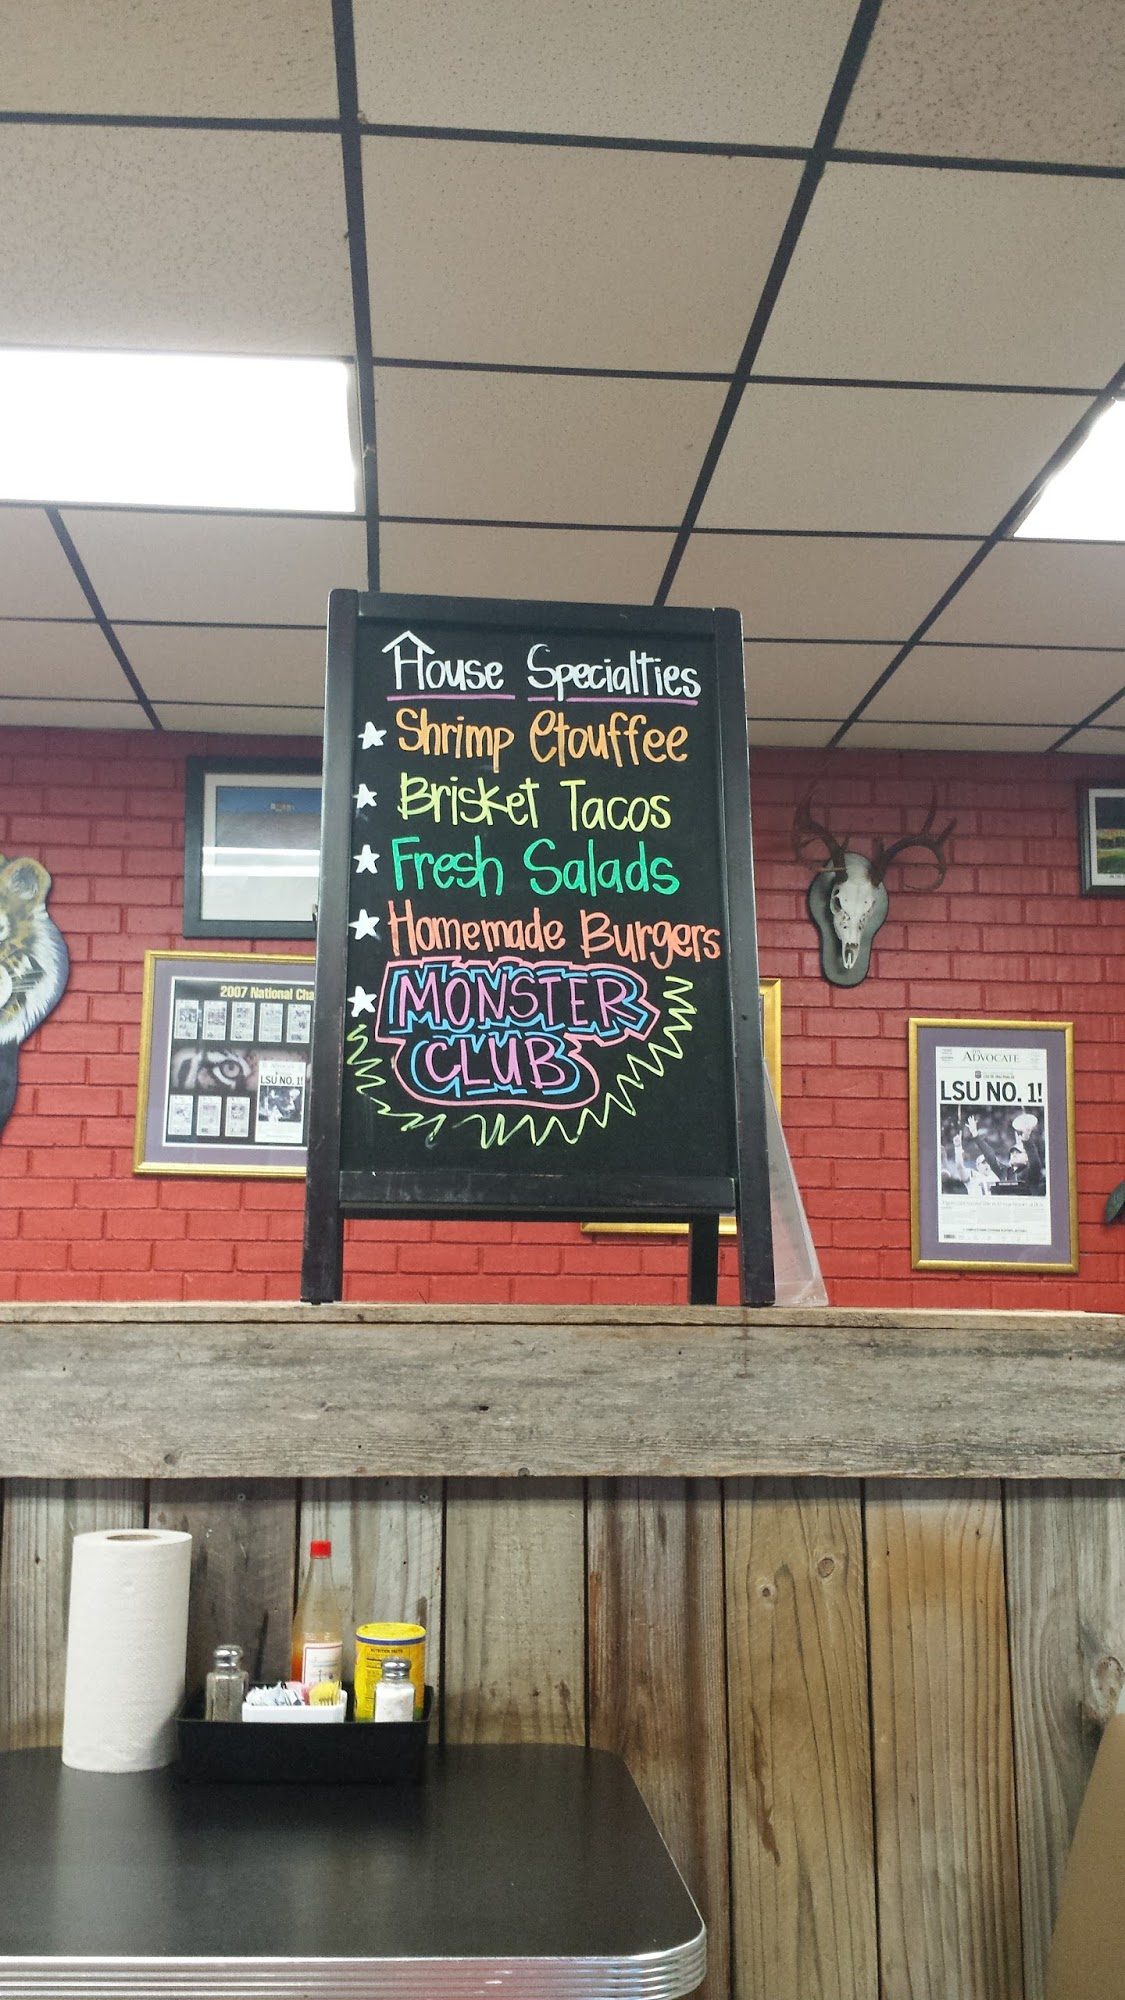 House Specialties
Shrimp Etouffee
Brisket Tacos
Fresh Salads
Homemade Burgers
MONSTER
CLUB
2007 National Cha
LSU NO. 1!
ADVOCATE
LSU NO. 1!
NUTRITION FACTS